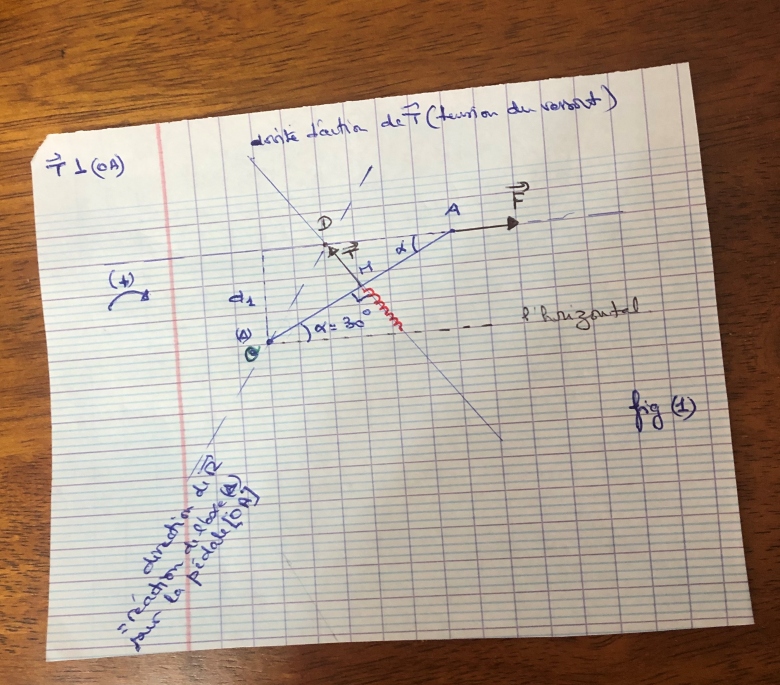 droite d'action de T (tension du ressort)
T ⊥ (OA)
F
D
A
(+)
T
α
H
d₁
(Δ)
α = 30°
O
l'horizontal
fig (1)
"direction de R
réaction de l'axe (Δ)
sur la pédale [OA]